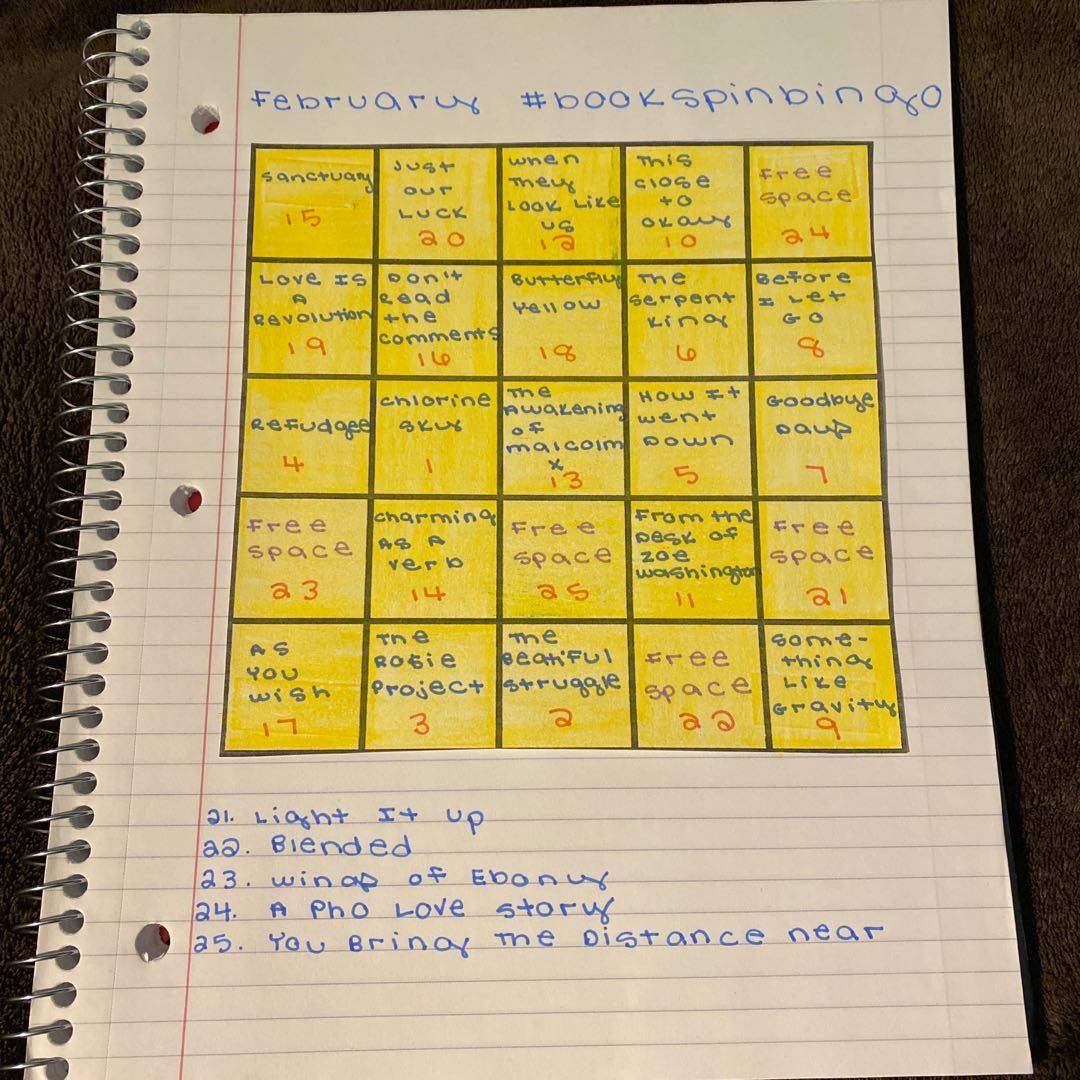 February #bookspinbingo
Sanctuary
15
Just
our
Luck
20
When
They
Look Like
us
12
This
Close
to
Okay
10
Free
Space
24
Love Is
A
Revolution
19
Don't
Read
the
Comments
16
Butterfly
Yellow
18
The
Serpent
King
6
Before
I Let
Go
8
Refudgee
4
Chlorine
Sky
1
The
Awakening
of
Malcolm
X
13
How It
Went
Down
5
Goodbye
Days
7
Free
Space
23
Charming
As A
Verb
14
Free
Space
25
From the
Desk of
Zoe
Washington
11
Free
Space
21
As
You
Wish
17
The
Rosie
Project
3
The
Beatiful
Struggle
2
Free
Space
22
Some-
thing
Like
Gravity
9
21. Light It Up
22. Blended
23. Wings of Ebony
24. A Pho Love Story
25. You Bring The Distance Near